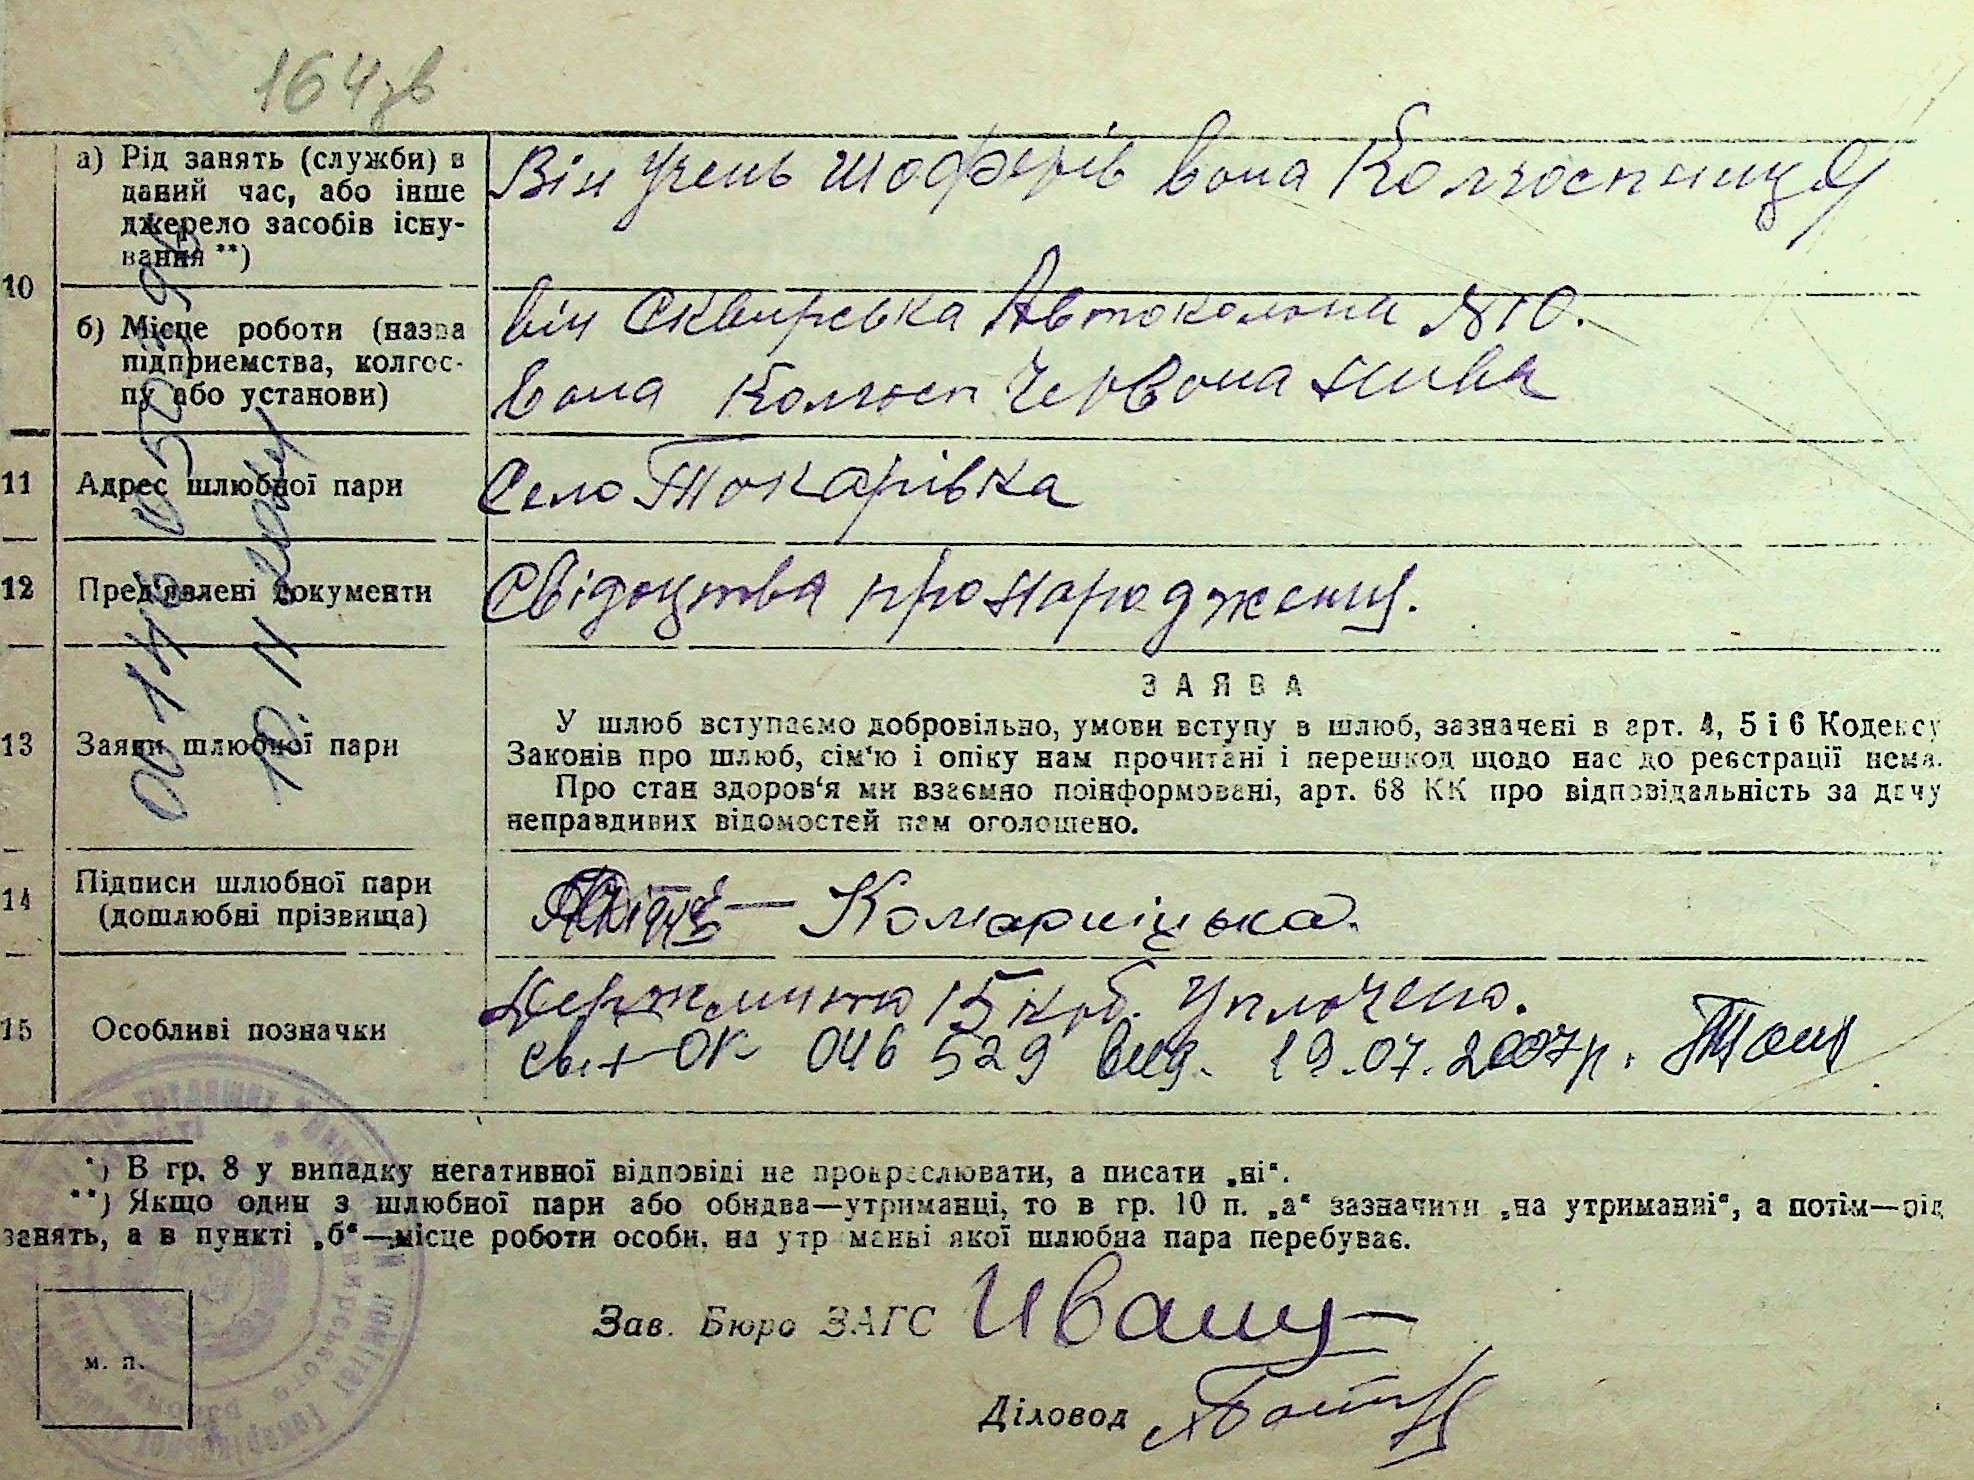 164 зв
а) Рід занять (служби) в
даний час, або інше
джерело засобів існу-
вання **)
Він Учень шоферів Вона Колгоспниця
10
б) Місце роботи (назва
підприємства, колгос-
пу або установи)
Він Сквирська Автоколона №10.
Вона Колгосп Червона нива
11 Адрес шлюбної пари
Село Токарівка
12 Пред'явлені документи
Свідоцтва про народження.
13 Заяви шлюбної пари
ЗАЯВА
У шлюб вступаємо добровільно, умови вступу в шлюб, зазначені в арт. 4, 5 і 6 Кодексу
Законів про шлюб, сім'ю і опіку нам прочитані і перешкод щодо нас до реєстрації нема.
Про стан здоров'я ми взаємно поінформовані, арт. 68 КК про відповідальність за дачу
неправдивих відомостей нам оголошено.
14 Підписи шлюбної пари
(дошлюбні прізвища)
Комарніцька.
15 Особливі позначки
Держмито 15 крб. Уплочено.
ОК 046 529 вид. 19.07.2007р.
*) В гр. 8 у випадку негативної відповіді не прокреслювати, а писати „ні“.
**) Якщо один з шлюбної пари або обидва—утриманці, то в гр. 10 п. „а“ зазначити „на утриманні“, а потім—рід
занять, а в пункті „б“—місце роботи особи, на утриманьі якої шлюбна пара перебуває.
м. п.
Зав. Бюро ЗАГС Иващ
Діловод